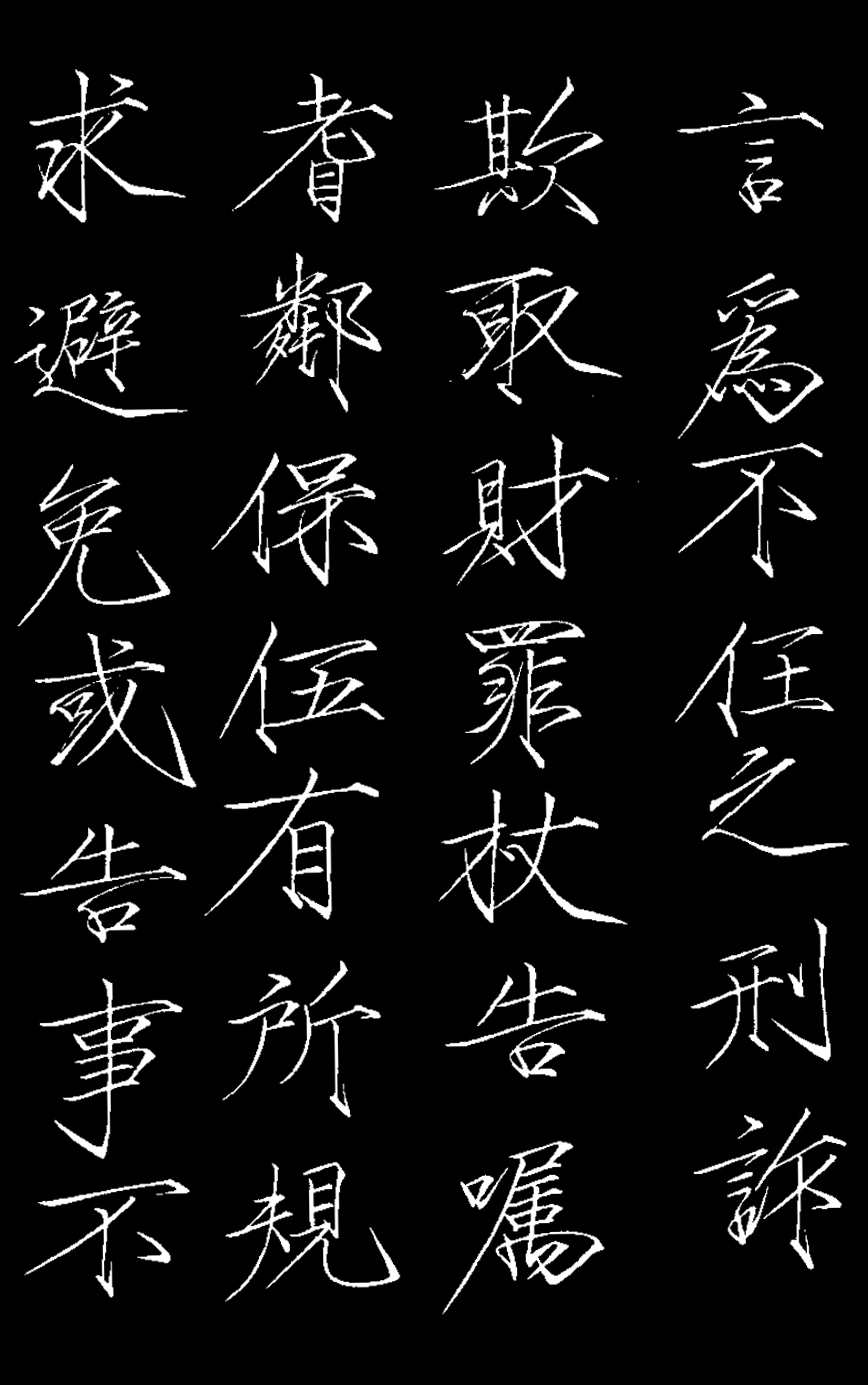 言爲不任之刑詐
欺取財罪杖告嘱
耆鄰保伍有所規
求避免或告事不